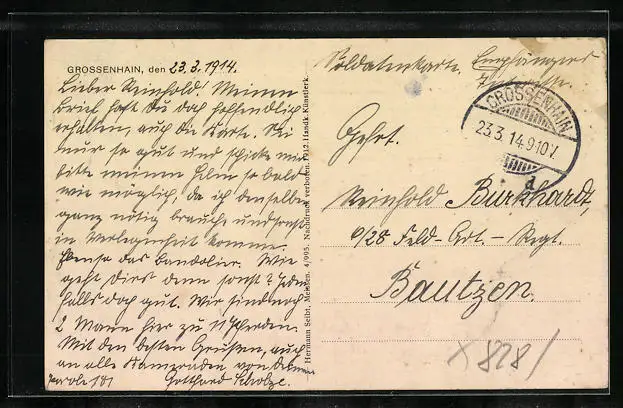 GROSSENHAIN, den 23.3.1914.
Lieber Reinhold! Meinen
Brief hast Du doch hoffentlich
erhalten, auch die Karte. Sei
nur so gut und schicke mir
bitte meinen Helm so bald
wie möglich, da ich denselben
ganz nötig brauche und sonst
in Verlegenheit komme.
Ebenso das Bandolier. Wie
geht Dirs denn sonst? Jeden
falls doch gut. Wir sind noch
2 Mann hier zu 11 Pferden.
Mit den besten Grüßen, auch
an alle Kameraden von Deinem
Parole 181 Gotthard Scholze.
Hermann Seibt, Meissen. 4/995. Nachdruck verboten. 1912 Handk. Künstlerk.
Soldatenkarte. Empfängers
GROSSENHAIN
23.3.14.9-10V.
d
Gefrt.
Reinhold Burkhardt,
6/28 Feld-Art.-Regt.
Bautzen.
x 828/